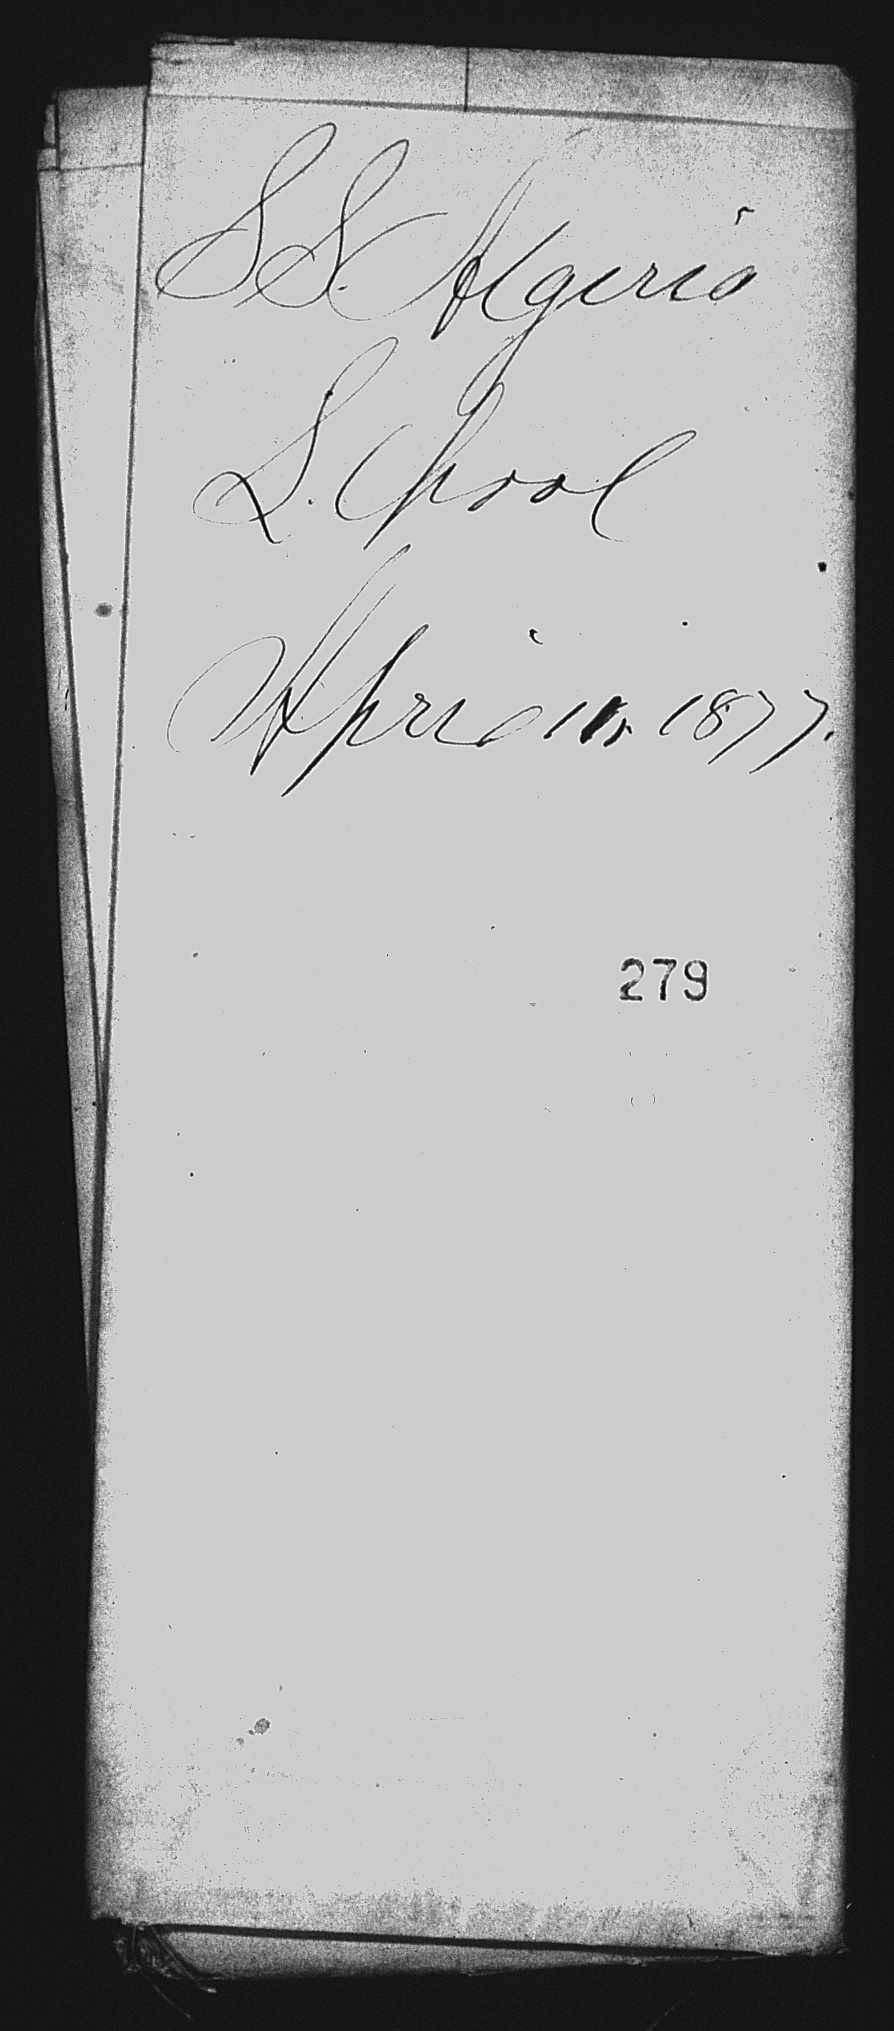 SS. Algeria
L.pool
April 11, 1877.
279